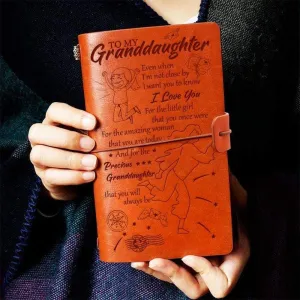 TO MY
Granddaughter
Even when
I'm not close by
I want you to know
I Love You
For the little girl
that you once were
For the amazing woman
that you are today
And for the
Precious
Granddaughter
that you will
always be